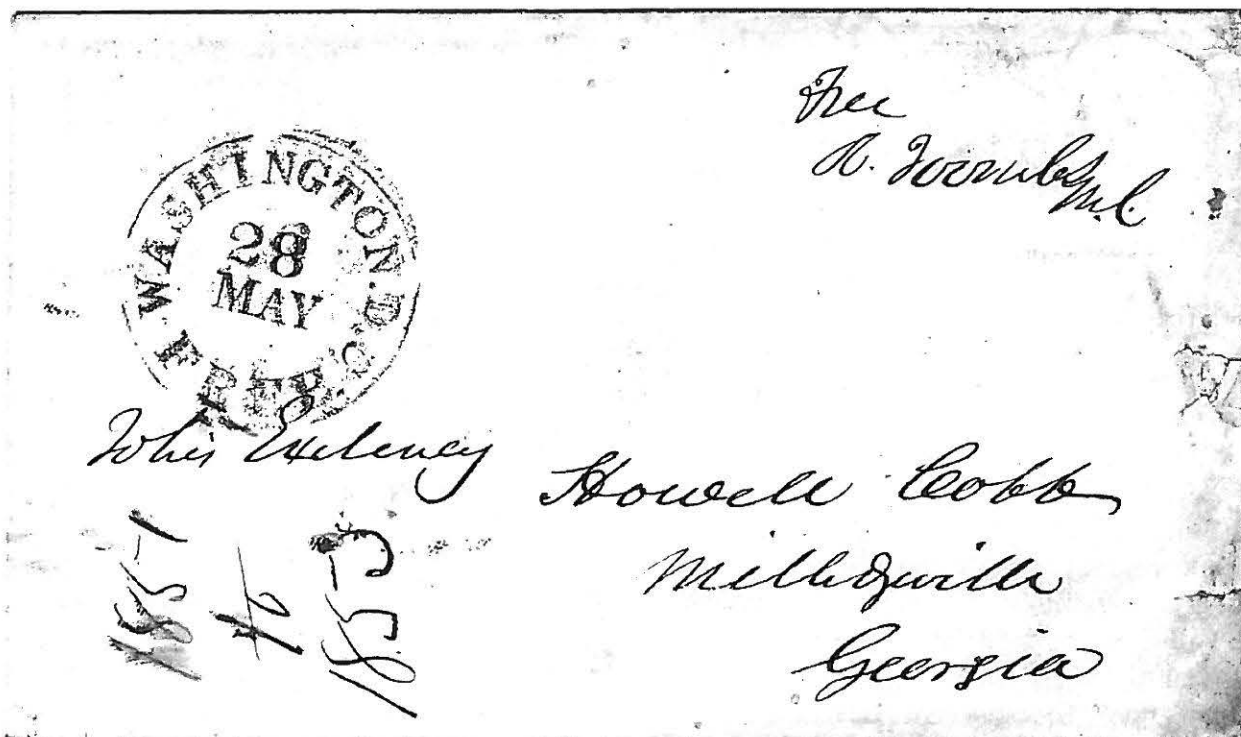 Free
R. Toombs M.C.
WASHINGTON. D.C.
28
MAY
FREE
To his Exelency
Howell Cobb
Milledgville
Georgia
1851
to
1853